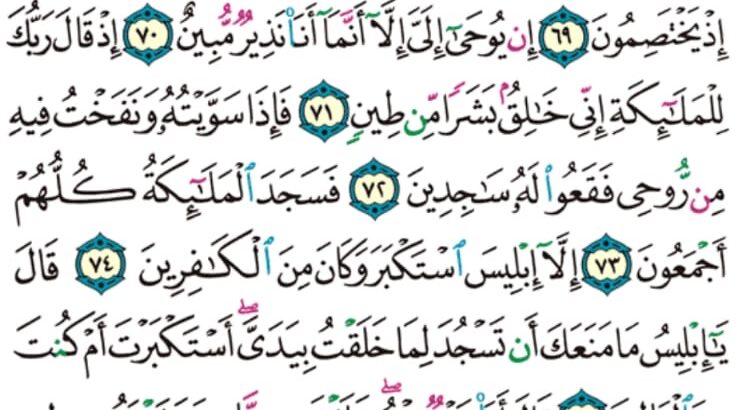 إِذْ يَخْتَصِمُونَ ٦٩ إِن يُوحَىٰٓ إِلَىَّ إِلَّآ أَنَّمَآ أَنَا۠ نَذِيرٌ مُّبِينٌ ٧٠ إِذْ قَالَ رَبُّكَ
لِلْمَلَٰٓئِكَةِ إِنِّى خَٰلِقٌۢ بَشَرًا مِّن طِينٍ ٧١ فَإِذَا سَوَّيْتُهُۥ وَنَفَخْتُ فِيهِ
مِن رُّوحِى فَقَعُوا۟ لَهُۥ سَٰجِدِينَ ٧٢ فَسَجَدَ ٱلْمَلَٰٓئِكَةُ كُلُّهُمْ
أَجْمَعُونَ ٧٣ إِلَّآ إِبْلِيسَ ٱسْتَكْبَرَ وَكَانَ مِنَ ٱلْكَٰفِرِينَ ٧٤ قَالَ
يَٰٓإِبْلِيسُ مَا مَنَعَكَ أَن تَسْجُدَ لِمَا خَلَقْتُ بِيَدَىَّ ۖ أَسْتَكْبَرْتَ أَمْ كُنتَ